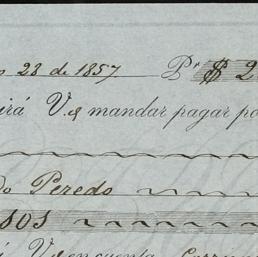 28 de 1857. Pr $ 2
irá V. mandar pagar po
do Peredo
SOS
V en cuenta